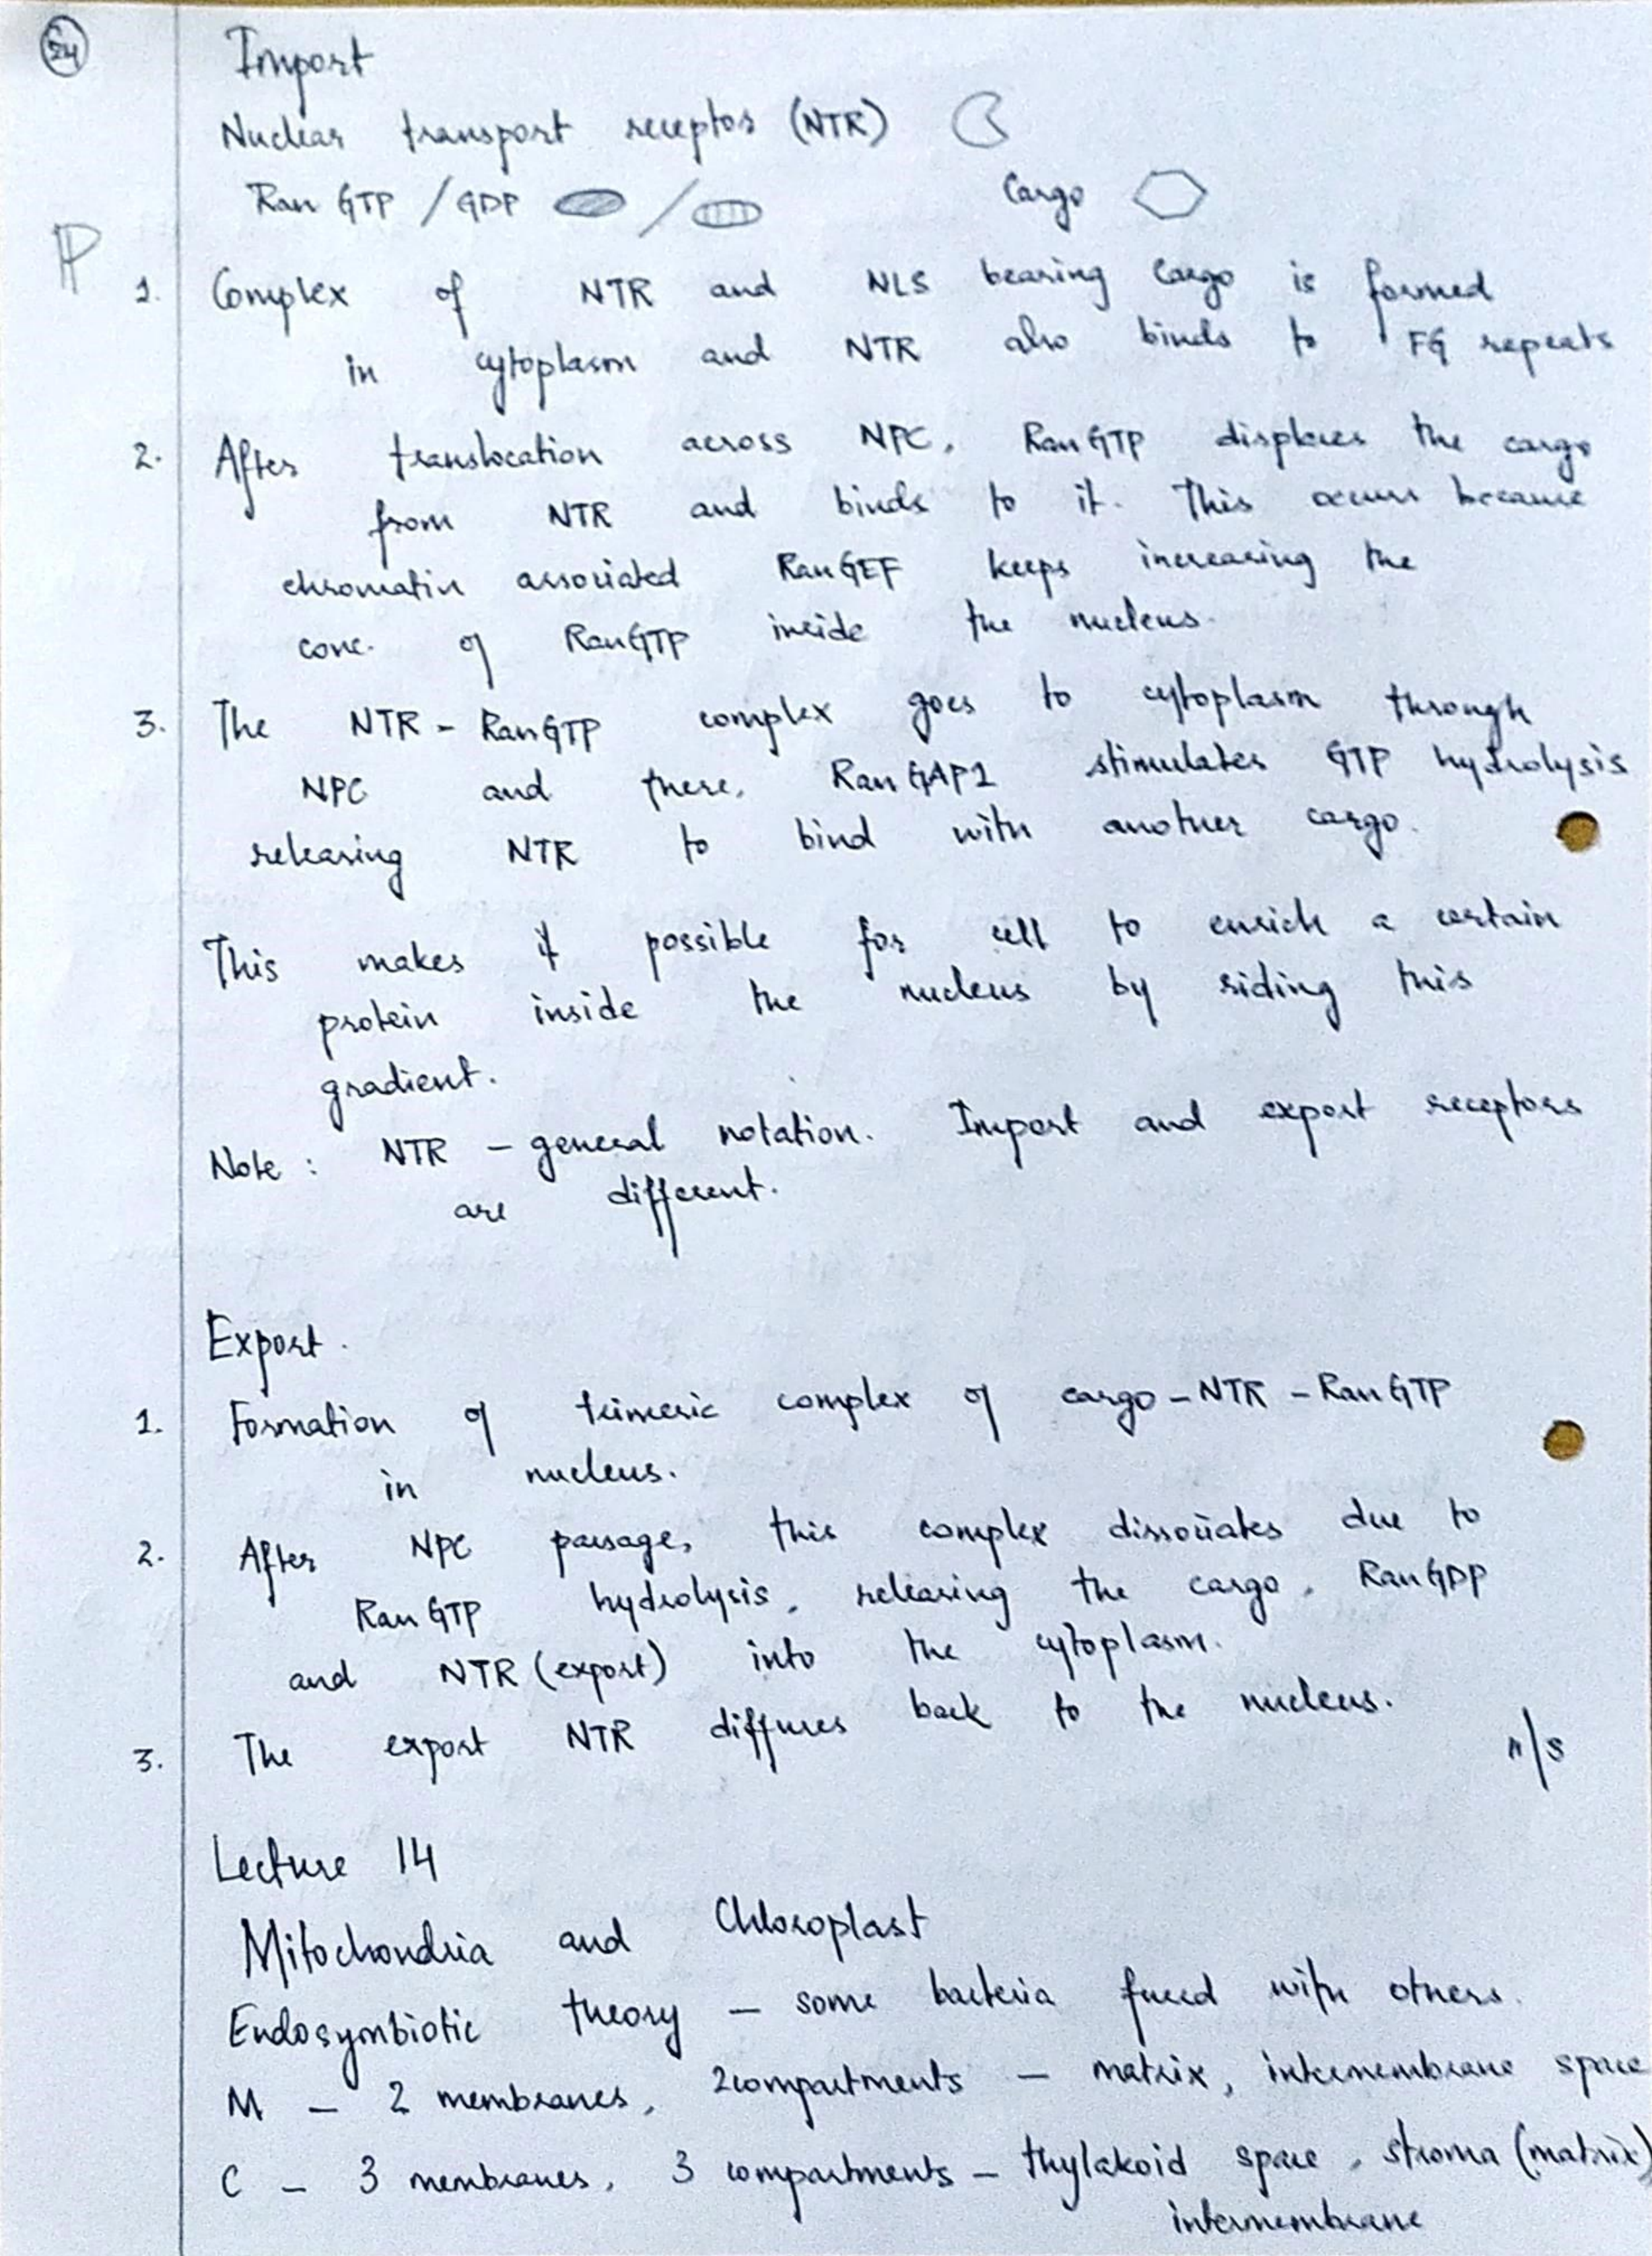 24
Import
Nuclear transport receptor (NTR)
Ran GTP / GDP / Cargo
P
1. Complex of NTR and NLS bearing Cargo is formed
in cytoplasm and NTR also binds to FG repeats
2. After translocation across NPC, RanGTP displaces the cargo
from NTR and binds to it. This occurs because
chromatin associated RanGEF keeps increasing the
conc. of RanGTP inside the nucleus.
3. The NTR - RanGTP complex goes to cytoplasm through
NPC and there, RanGAP1 stimulates GTP hydrolysis
releasing NTR to bind with another cargo.
This makes it possible for cell to enrich a certain
protein inside the nucleus by riding this
gradient.
Note : NTR - general notation. Import and export receptors
are different.
Export.
1. Formation of trimeric complex of cargo - NTR - RanGTP
in nucleus.
2. After NPC passage, this complex dissociates due to
RanGTP hydrolysis, releasing the cargo, RanGDP
and NTR (export) into the cytoplasm.
3. The export NTR diffuses back to the nucleus.
Lecture 14
Mitochondria and Chloroplast
Endosymbiotic theory - some bacteria fused with others.
M - 2 membranes, 2compartments - matrix, intermembrane space
C - 3 membranes, 3 compartments - thylakoid space, stroma (matrix)
intermembrane